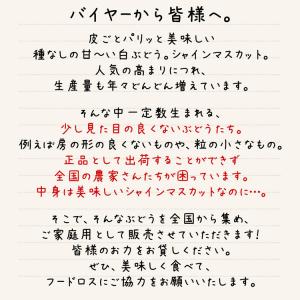 バイヤーから皆様へ。
皮ごとパリッと美味しい
種なしの甘〜い白ぶどう。シャインマスカット。
人気の高まりにつれ、
生産量も年々どんどん増えています。
そんな中一定数生まれる、
少し見た目の良くないぶどうたち。
例えば房の形の良くないものや、粒の小さなもの。
正品として出荷することができず
全国の農家さんたちが困っています。
中身は美味しいシャインマスカットなのに…。
そこで、そんなぶどうを全国から集め、
ご家庭用として販売させていただきます!
皆様のお力をお貸しください。
ぜひ、美味しく食べて、
フードロスにご協力をお願いいたします。